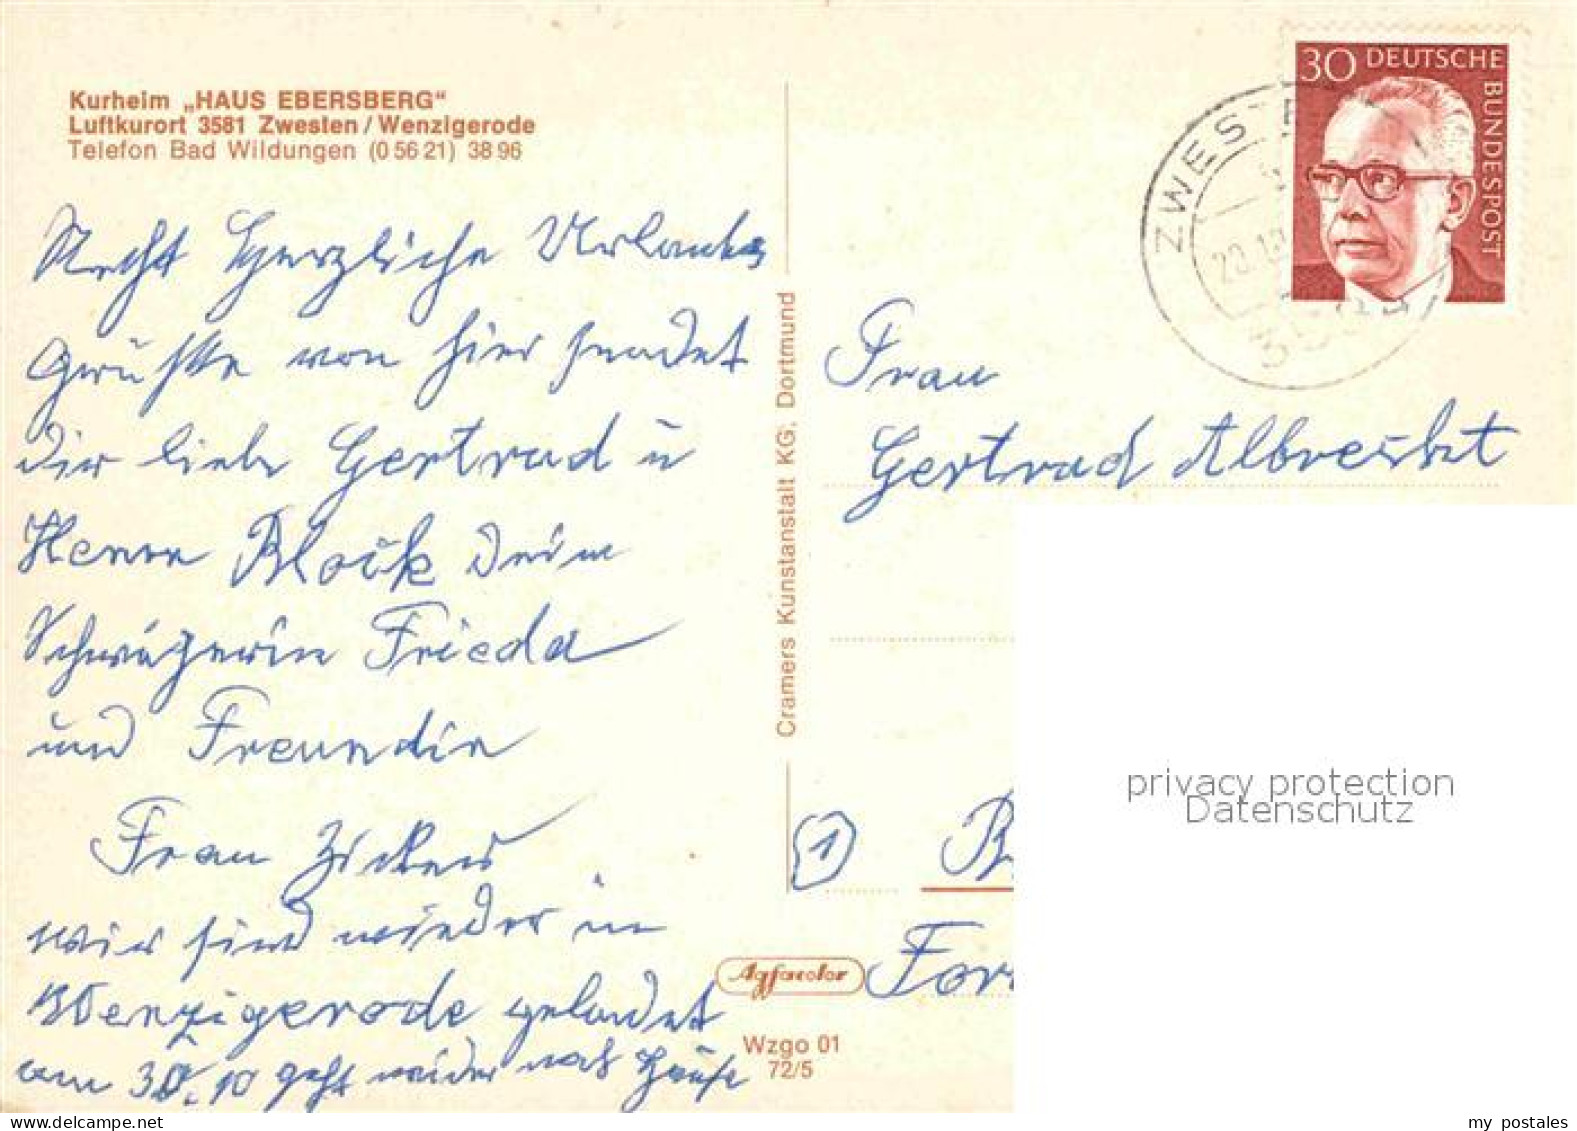 Kurheim „HAUS EBERSBERG“
Luftkurort 3581 Zwesten / Wenzigerode
Telefon Bad Wildungen (0 56 21) 38 96
Recht Herzliche Urlaubs
Grüße von hier sendet
dir liebe Gertrud u
Herrn Block Deine
Schwägerin Frieda
und Freundin
Frau
wir sind wieder in
Wenzigerode gelandet
am 30.10 geht wieder nach Hause
Cramers Kunstanstalt KG, Dortmund
Agfacolor
Wzgo 01
72/5
30 DEUTSCHE
BUNDESPOST
ZWESTE
Frau
Gertrud Albrecht
1
privacy protection
Datenschutz
my postales